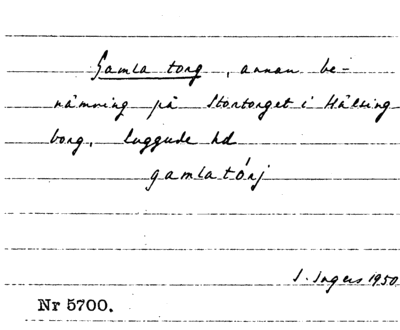 Gamla torg, annan be-
nämning på Stortorget i Hälsing
borg, Luggude hd
gamlatórj
I. Ingers 1950
Nr 5700.